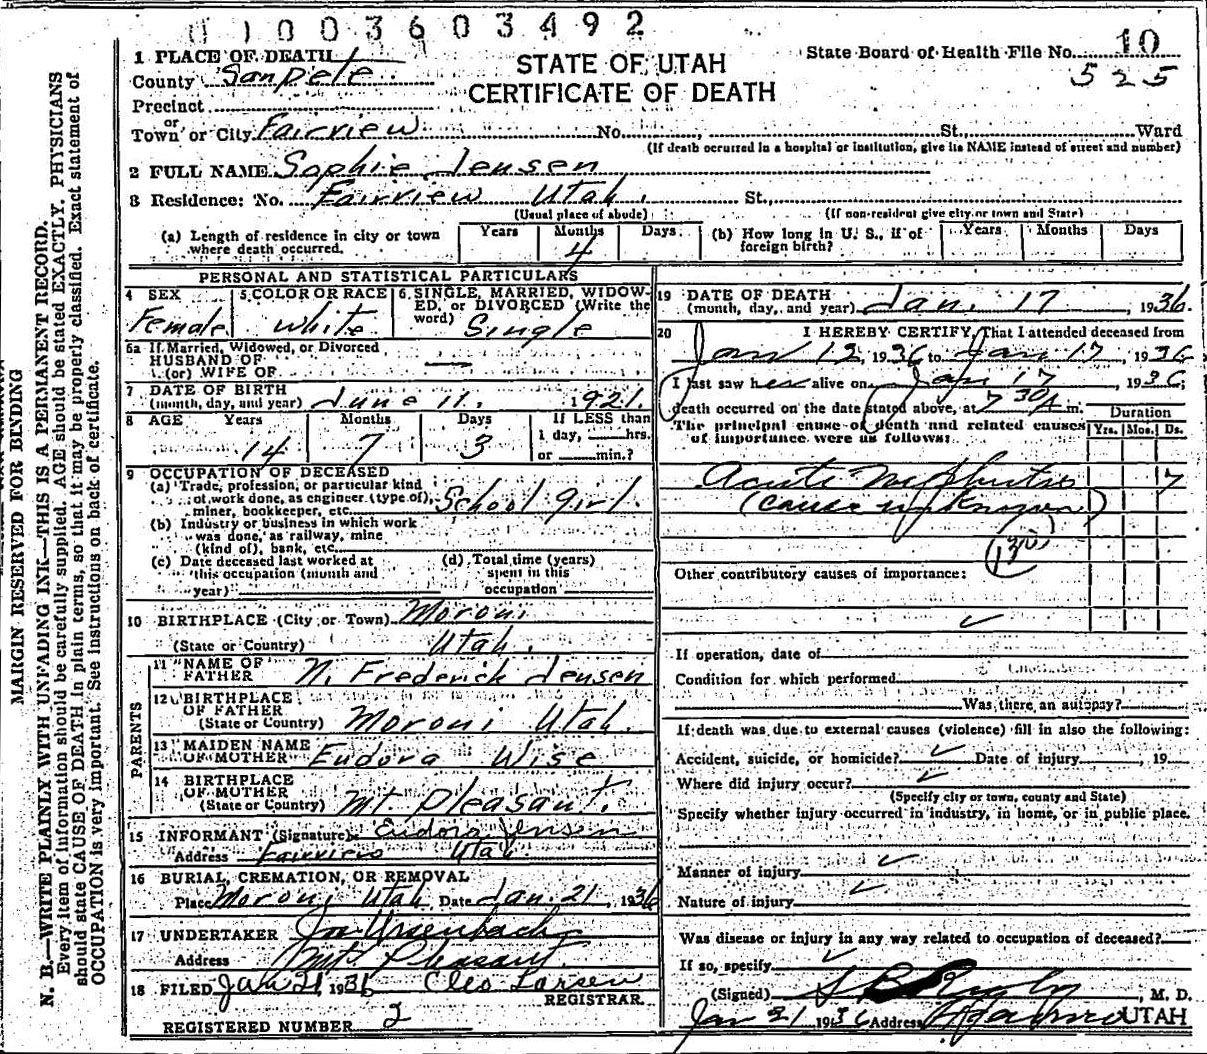 11003603492
State Board of Health File No. 10
525
STATE OF UTAH
CERTIFICATE OF DEATH
1 PLACE OF DEATH
County Sanpete
Precinct
or
Town or City Fairview No. , St., Ward
(If death occurred in a hospital or institution, give its NAME instead of street and number)
2 FULL NAME Sophie Jensen
3 Residence: No. Fairview Utah. St.,
(Usual place of abode) (If non-resident give city or town and State)
(a) Length of residence in city or town where death occurred. Years Months 4 Days (b) How long in U. S., if of foreign birth? Years Months Days
PERSONAL AND STATISTICAL PARTICULARS
4 SEX Female
5 COLOR OR RACE White
6 SINGLE, MARRIED, WIDOWED, or DIVORCED (Write the word) Single
6a If Married, Widowed, or Divorced
HUSBAND OF
(or) WIFE OF —
7 DATE OF BIRTH
(month, day, and year) June 11. 1921.
8 AGE Years 14 Months 7 Days 3 If LESS than
1 day, hrs.
or min.?
9 OCCUPATION OF DECEASED
(a) Trade, profession, or particular kind
of work done, as engineer (type of), School girl.
miner, bookkeeper, etc.
(b) Industry or business in which work
was done, as railway, mine
(kind of), bank, etc.
(c) Date deceased last worked at
this occupation (month and
year)
(d) Total time (years)
spent in this
occupation
10 BIRTHPLACE (City or Town) Moroni
(State or Country) Utah.
PARENTS
11 NAME OF
FATHER N. Frederick Jensen
12 BIRTHPLACE
OF FATHER
(State or Country) Moroni Utah.
13 MAIDEN NAME
OF MOTHER Eudora Wise
14 BIRTHPLACE
OF MOTHER
(State or Country) Mt. Pleasant.
15 INFORMANT (Signature) Eudora Jensen
Address Fairview Utah.
16 BURIAL, CREMATION, OR REMOVAL
Place Moroni Utah Date Jan. 21, 1936
17 UNDERTAKER Jas Ursenbach
Address Mt. Pleasant
18 FILED Jan 21, 1936 Cleo Larsen
REGISTRAR
REGISTERED NUMBER 2
19 DATE OF DEATH
(month, day, and year) Jan. 17, 1936.
20 I HEREBY CERTIFY, That I attended deceased from
Jan 12, 1936 to Jan 17, 1936
I last saw her alive on Jan 17, 1936;
death occurred on the date stated above, at 7 30 A m.
The principal cause of death and related causes
of importance were as follows:
Duration
Yrs. Mos. Ds.
Acute Nephritis 7
(cause unknown)
(130)
Other contributory causes of importance:
If operation, date of
Condition for which performed
Was there an autopsy?
If death was due to external causes (violence) fill in also the following:
Accident, suicide, or homicide? Date of injury , 19
Where did injury occur?
(Specify city or town, county and State)
Specify whether injury occurred in industry, in home, or in public place.
Manner of injury
Nature of injury
Was disease or injury in any way related to occupation of deceased?
If so, specify
(Signed) S B Rigby, M. D.
Jan 21 1936 Address UTAH
MARGIN RESERVED FOR BINDING
N. B.—WRITE PLAINLY WITH UNFADING INK—THIS IS A PERMANENT RECORD.
Every item of information should be carefully supplied. AGE should be stated EXACTLY. PHYSICIANS
should state CAUSE OF DEATH in plain terms, so that it may be properly classified. Exact statement of
OCCUPATION is very important. See instructions on back of certificate.